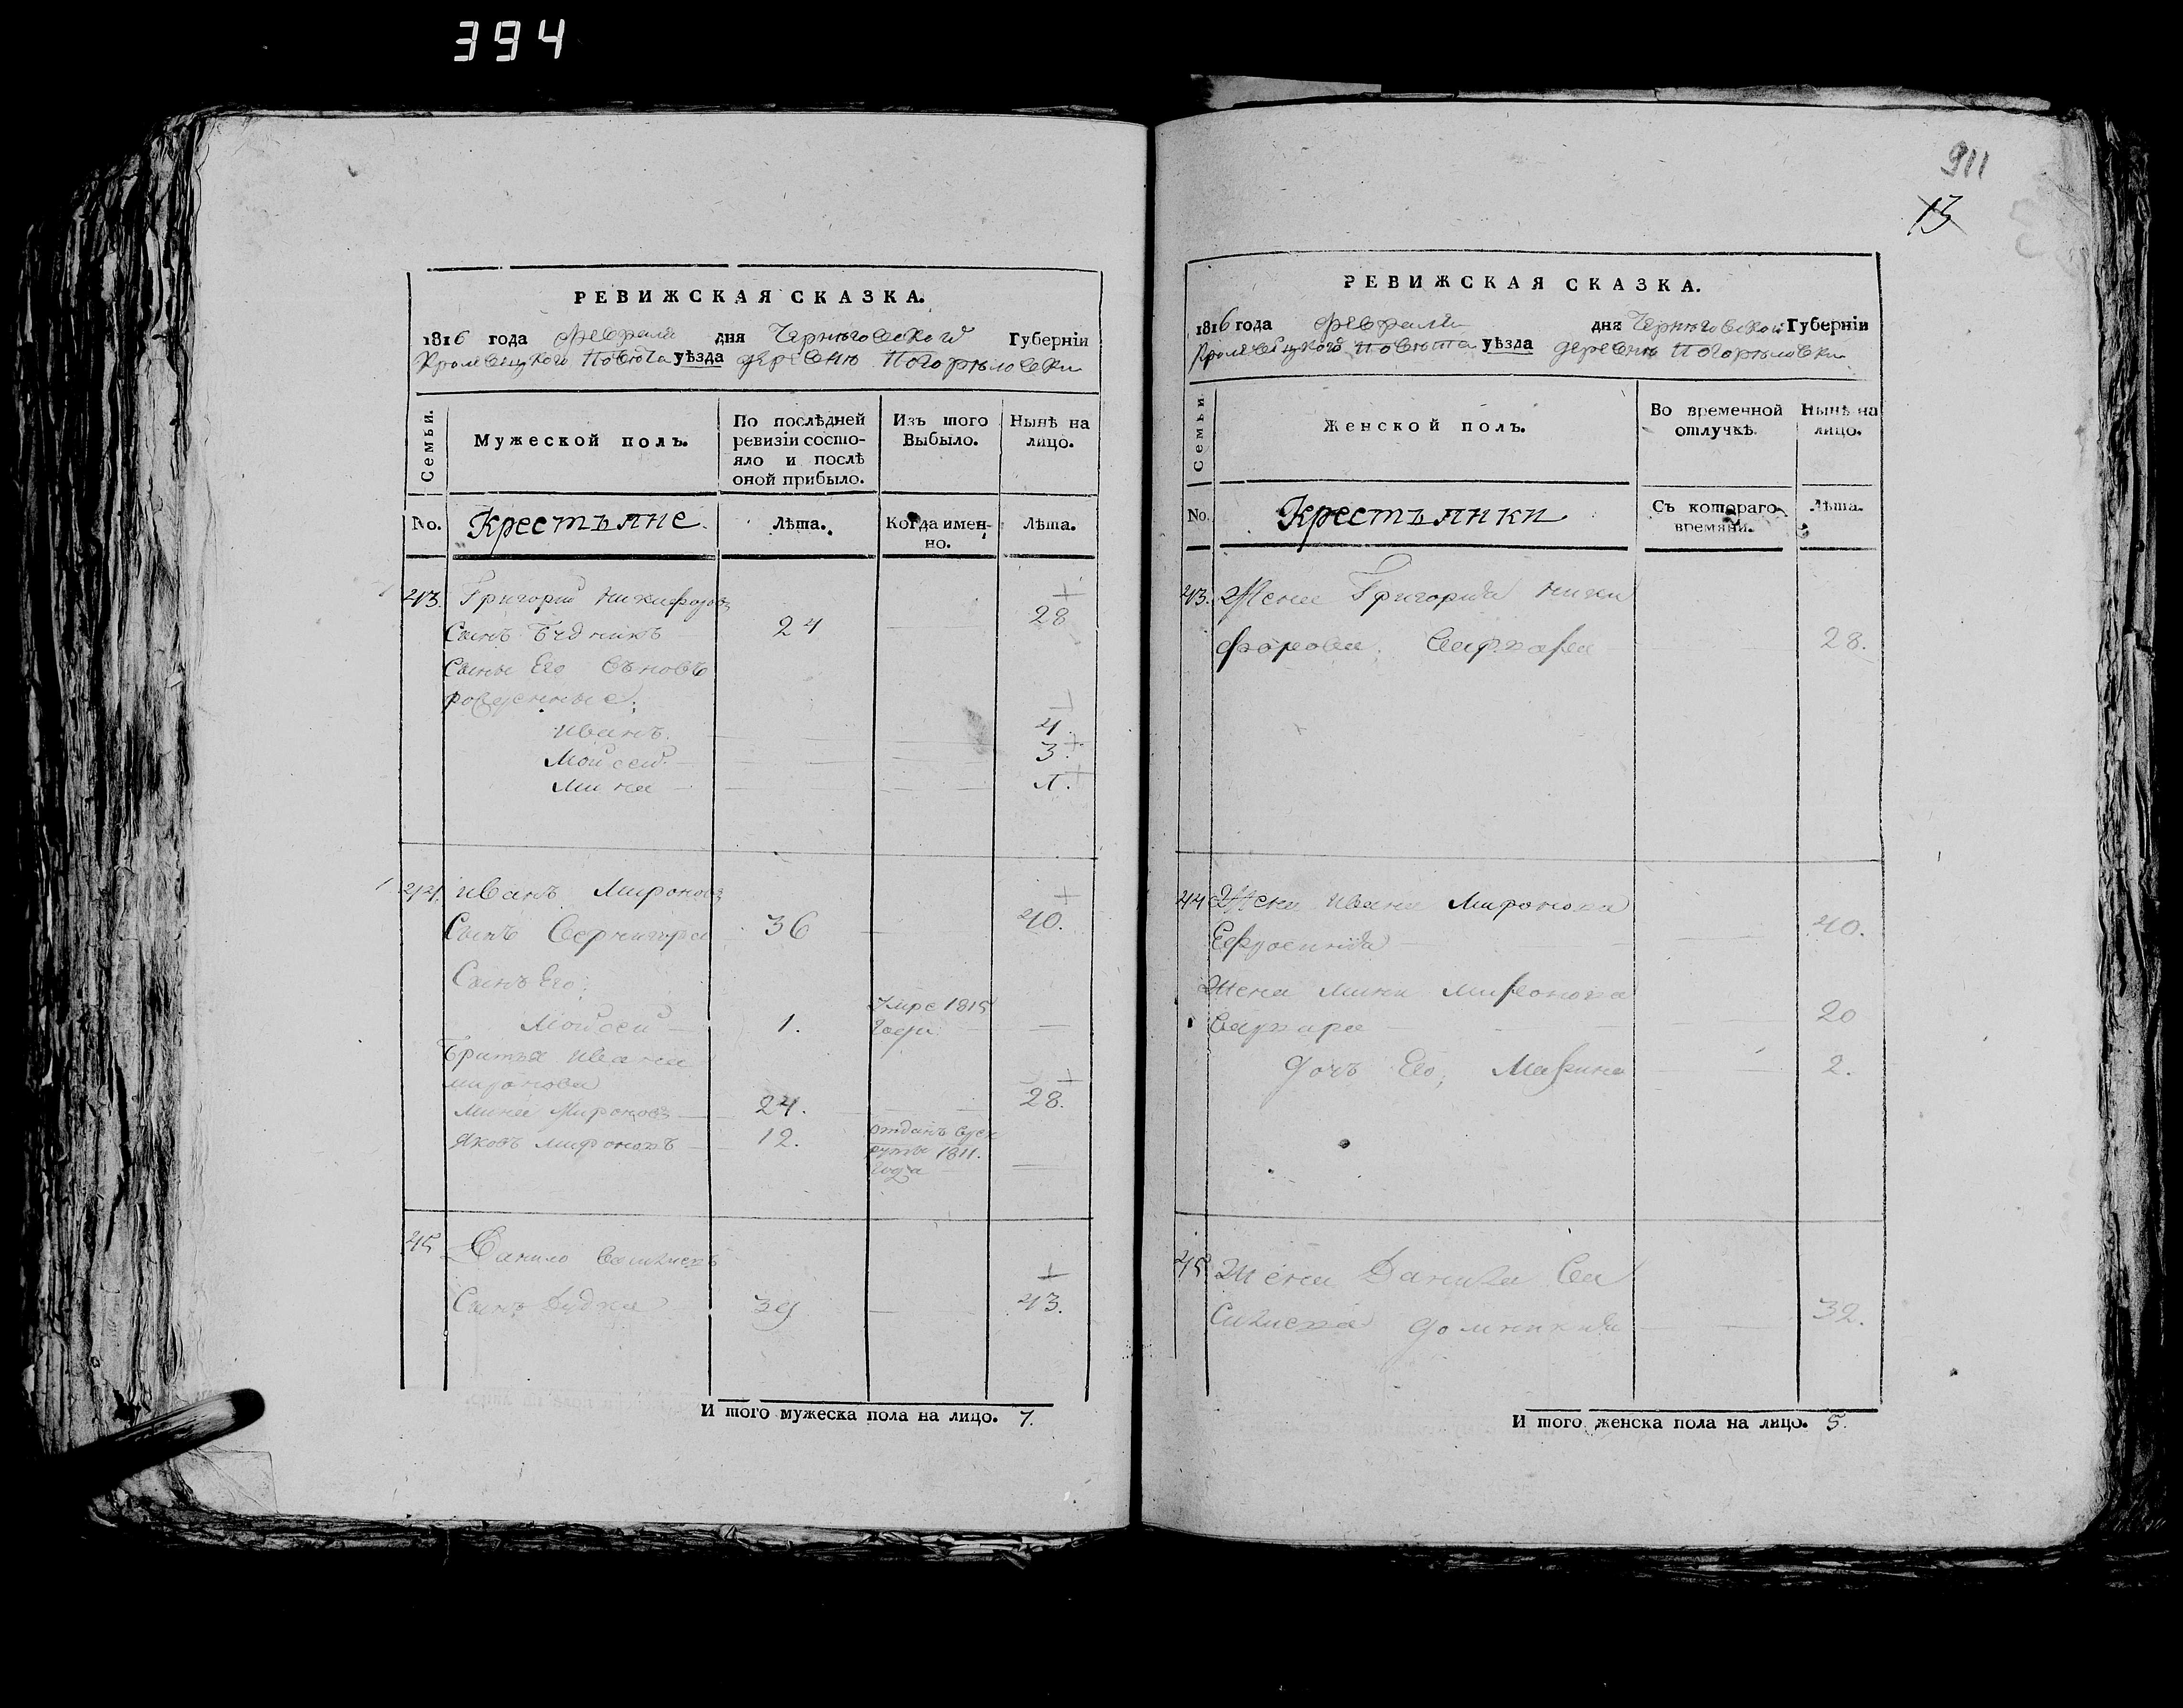 394
РЕВИЖСКАЯ СКАЗКА.
1816 года февраля дня Черниговской Губерніи
Кролевецкого Повѣта уѣзда деревни Погорѣловки
Семьи.
Мужеской полъ.
По послѣдней
ревизіи состо-
яло и послѣ
оной прибыло.
Изъ того
Выбыло.
Нынѣ на
лицо.
No. Крестьяне. Лѣта. Когда имен-
но.
Лѣта.
43. Григорій Никифоровъ
28
Сынъ Бѣдникъ 24
Сыны Его вновь
рожденные:
Иванъ. 4.
Мойсей 3.
Мина
44. Иванъ Мироновъ
Сынъ Вернигора 36 40.
Сынъ Его:
Мойсей 1. Умре 1815
года
Братья Ивана
Миронова
Миней Мироновъ 24. 28.
Яковъ Мироновъ 12. отданъ врек
руты 1811.
года
45 Данило
Сынъ Дудка 39 43.
И того мужеска пола на лицо. 7.
911
13
РЕВИЖСКАЯ СКАЗКА.
1816 года февраля дня Черниговской Губерніи
Кролевецкого Повѣта уѣзда деревни Погорѣловки
Семьи.
Женской полъ.
Во временной
отлучкѣ.
Нынѣ на
лицо.
No. Крестьянки Съ котораго
времяни.
Лѣта.
43. Жена Григорія Ники
форова, 28.
44 Жена Ивана Миронова
Ефросинія 40.
Жена Мины Миронова
Варвара 20
дочь Его, Марина 2.
45. Жена Данила Ва
домникія 32.
И того женска пола на лицо. 5.